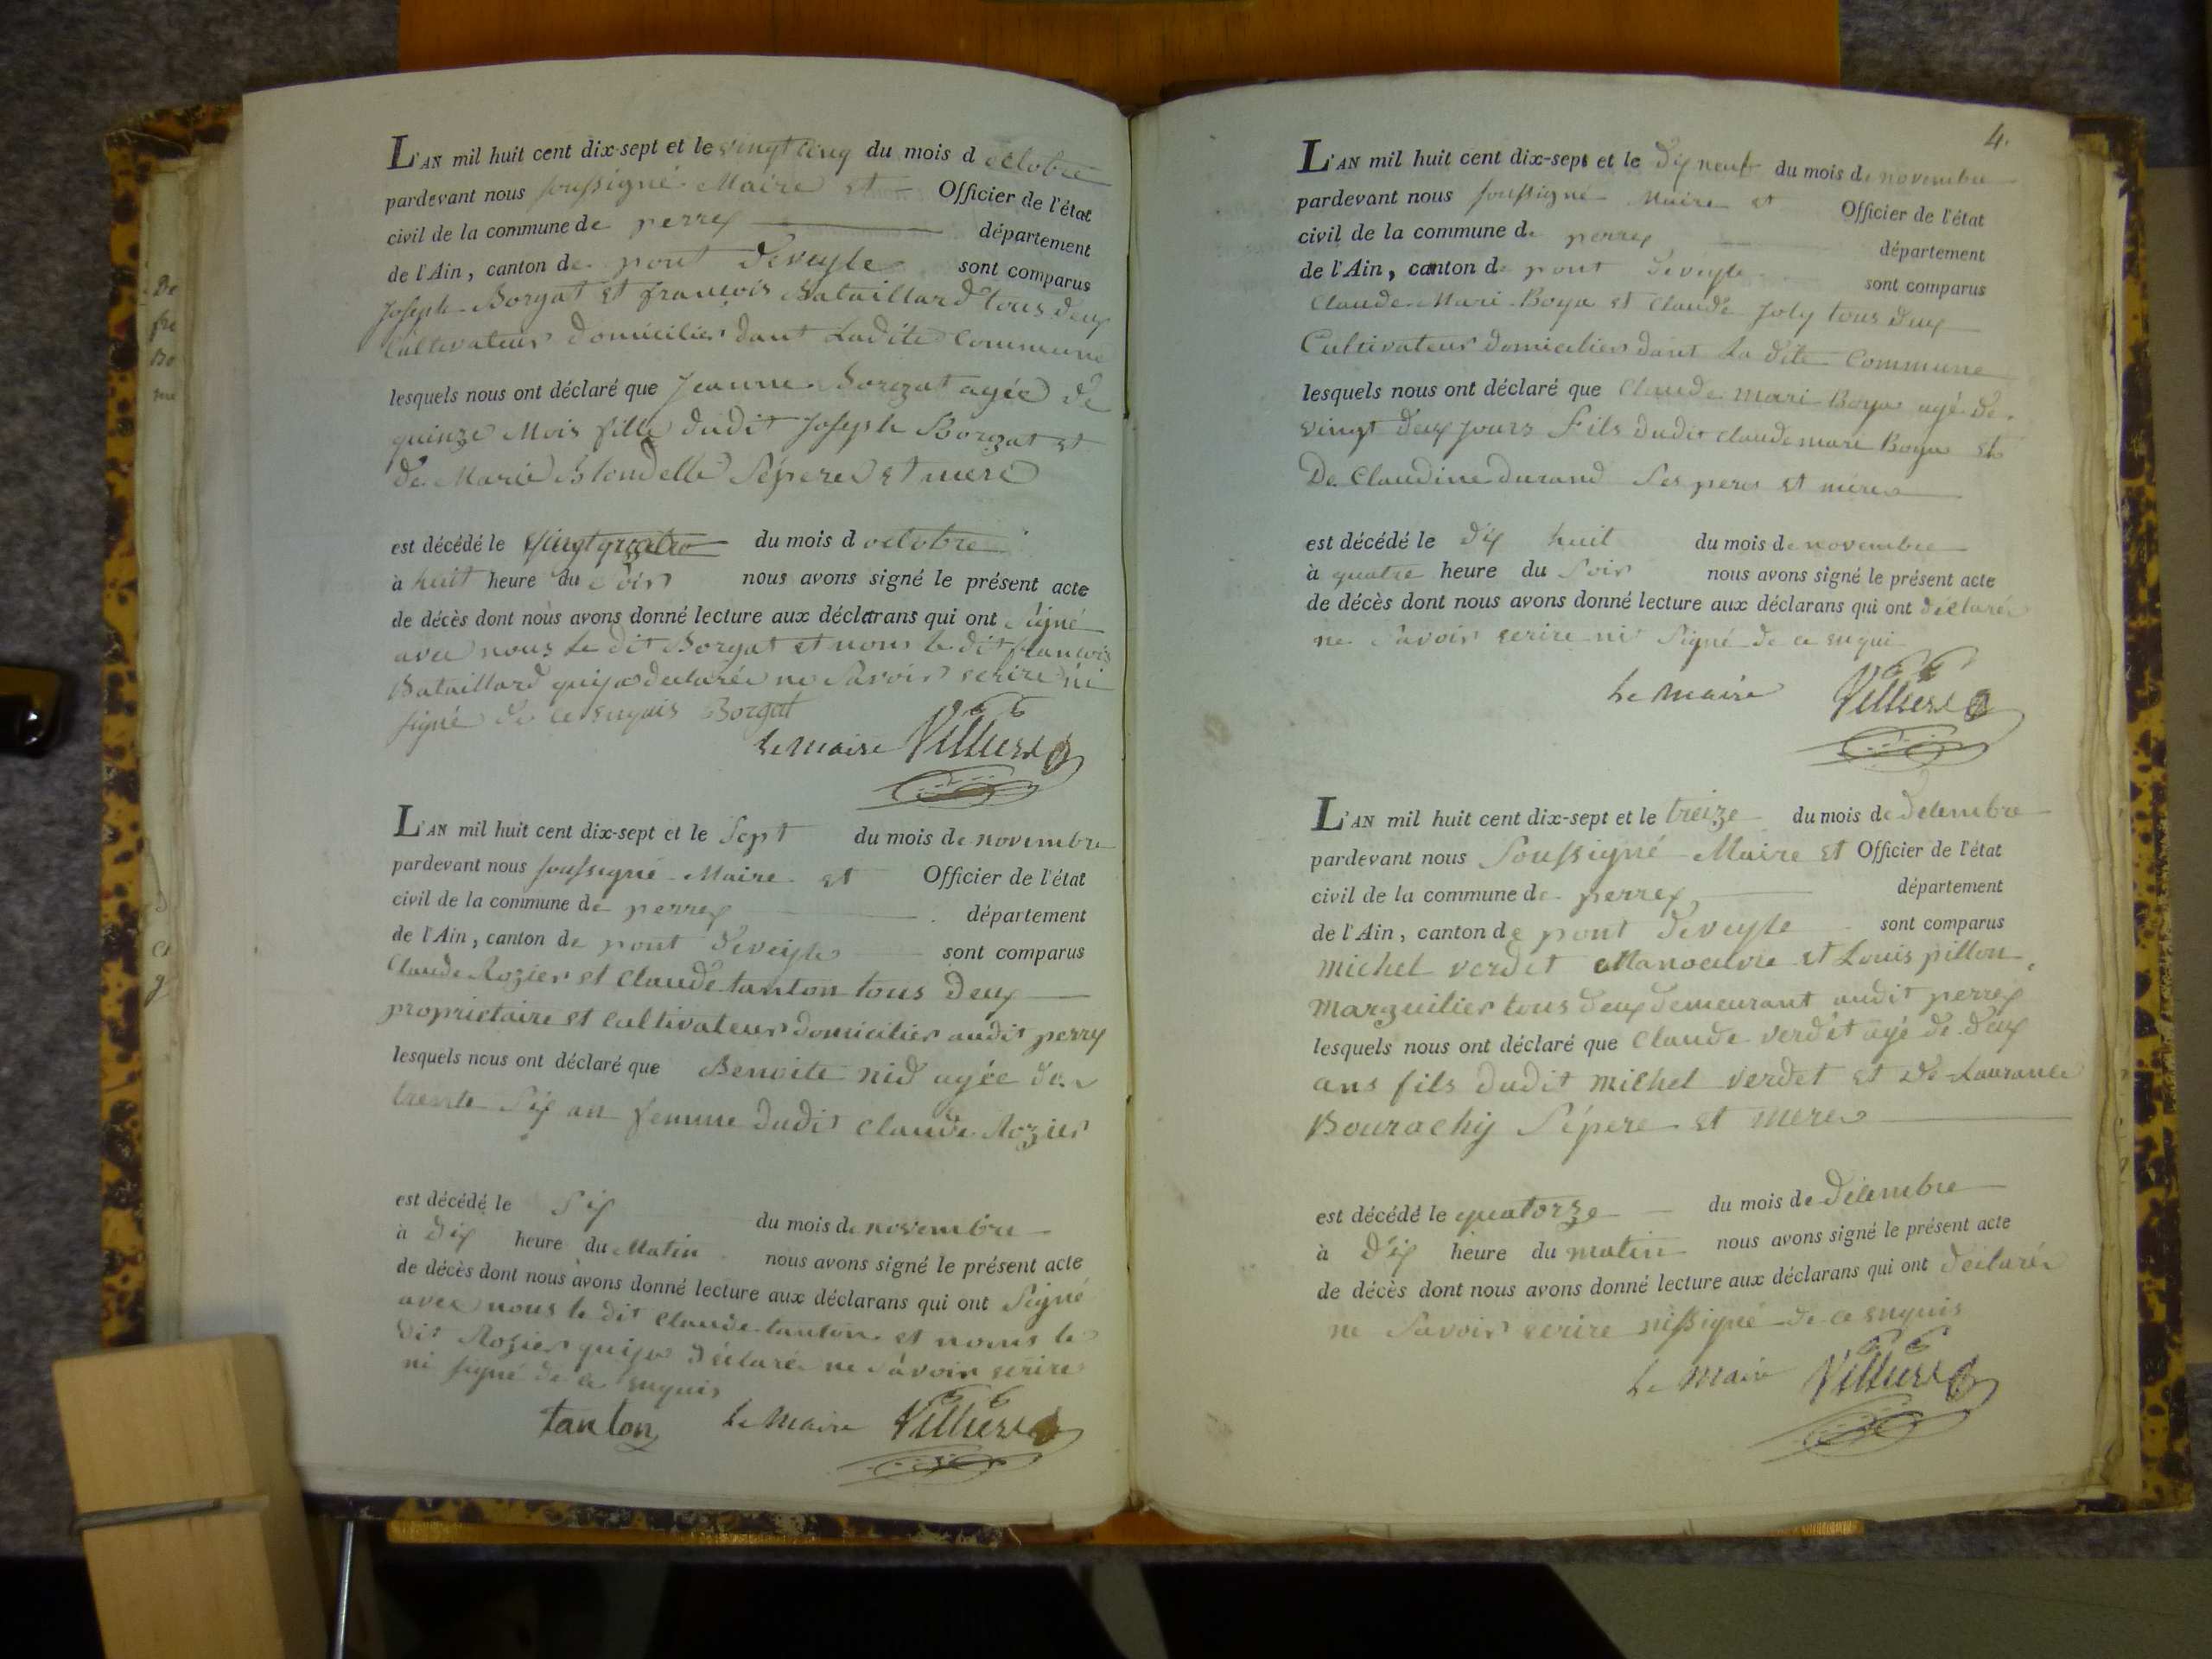 L'AN mil huit cent dix-sept et le vingt cinq du mois d octobre
pardevant nous soussigné Maire et Officier de l'état
civil de la commune de perrex département
de l'Ain, canton de pont deveyle sont comparus
Joseph Borgat et françois Bataillard tous deux
Cultivateurs domicilier dant Ladite Commune
lesquels nous ont déclaré que Jeanne Borgat agée de
quinze Mois fille dudit Joseph Borgat et
de Marie Blondelle Sépere et mere
est décédé le vingt quatre du mois d octobre
à huit heure du Soir nous avons signé le présent acte
de décès dont nous avons donné lecture aux déclarans qui ont signé
avec nous Le dit Borgat et nom le dit françois
Bataillard qui ja declarée ne Savoir ecrire ni
signé de ce enquis Borgat
Le Maire Villiers
L'AN mil huit cent dix-sept et le Sept du mois de novembre
pardevant nous soussigné Maire et Officier de l'état
civil de la commune de perrex département
de l'Ain, canton de pont deveyle sont comparus
Claude Rozier et Claude tanton tous deux
proprietaire et cultivateur domicilier audit perrex
lesquels nous ont déclaré que Benoite nid agée de
trente Six an femme dudit Claude Rozier
est décédé le Six du mois de novembre
à Dix heure du Matin nous avons signé le présent acte
de décès dont nous avons donné lecture aux déclarans qui ont Signé
avec nous le dit Claude tanton et nom le
dit Rozier qui ja déclaré ne Savoir ecrire
ni signé de ce enquis
tanton Le Maire Villiers
4.
L'AN mil huit cent dix-sept et le Dix neuf du mois de novembre
pardevant nous soussigné Maire et Officier de l'état
civil de la commune de perrex département
de l'Ain, canton de pont deveyle sont comparus
Claude Mari Boya et Claude Joly tous deux
Cultivateur domicilier dant La dite Commune
lesquels nous ont déclaré que Claude mari Boya agé de
vingt deux jours Fils dudit claude mari Boya et
De Claudine durand Ses peres et meres
est décédé le dix huit du mois de novembre
à quatre heure du Soir nous avons signé le présent acte
de décès dont nous avons donné lecture aux déclarans qui ont déclarée
ne Savoir ecrire ni Signé de ce enqui
Le Maire Villiers
L'AN mil huit cent dix-sept et le treize du mois de decembre
pardevant nous Soussigné Maire et Officier de l'état
civil de la commune de perrex département
de l'Ain, canton de pont deveyle sont comparus
michel verdet Manoeuvre et Louis pillon
marguilier tous deux demeurant audit perrex
lesquels nous ont déclaré que Claude verdet agé de deux
ans fils dudit michel verdet et de Laurance
Bourachy Sépere et meres
est décédé le quatorze du mois de décembre
à dix heure du matin nous avons signé le présent acte
de décès dont nous avons donné lecture aux déclarans qui ont déclarée
ne Savoir ecrire ni signé de ce enquis
Le Maire Villiers